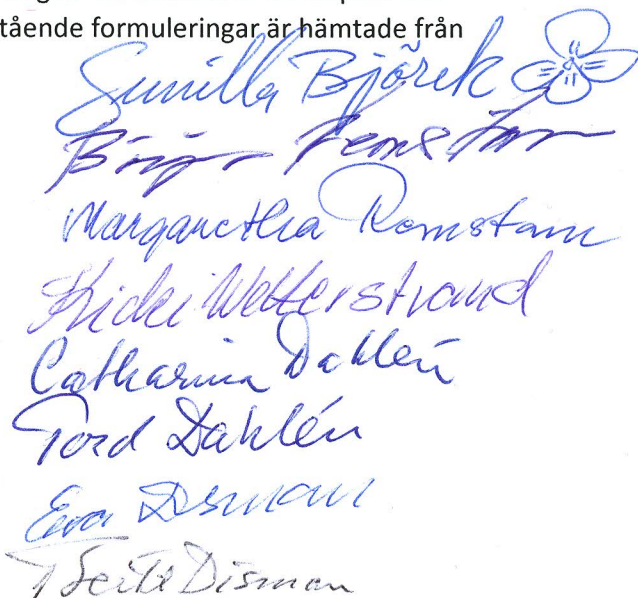 stående formuleringar är hämtade från
Gunilla Björck
Margaretha Ramstam
Kicki Wetterstrand
Catharina Dahlén
Tord Dahlén
Eva Disman
Disman